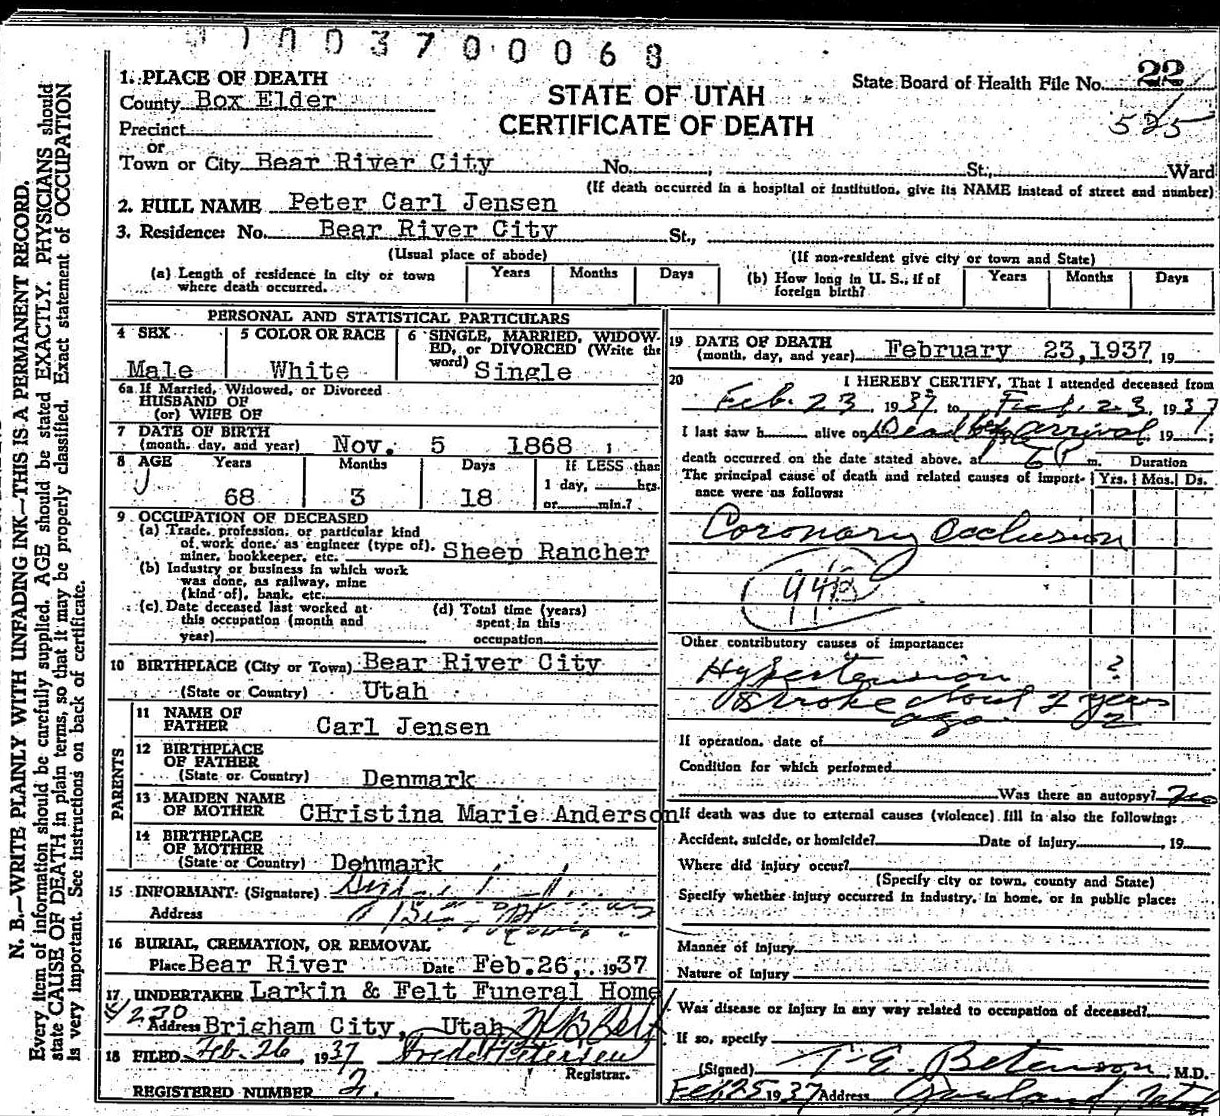 003700068
1. PLACE OF DEATH
County Box Elder
Precinct
or
Town or City Bear River City No. St., Ward
(If death occurred in a hospital or institution, give its NAME instead of street and number)
STATE OF UTAH
CERTIFICATE OF DEATH
State Board of Health File No. 22
525
2. FULL NAME Peter Carl Jensen
3. Residence: No. Bear River City St.,
(Usual place of abode)
(If non-resident give city or town and State)
(a) Length of residence in city or town where death occurred. Years Months Days
(b) How long in U. S., if of foreign birth? Years Months Days
PERSONAL AND STATISTICAL PARTICULARS
4 SEX
Male
5 COLOR OR RACE
White
6 SINGLE, MARRIED, WIDOW-
ED, or DIVORCED (Write the
word) Single
6a If Married, Widowed, or Divorced
HUSBAND OF
(or) WIFE OF
7 DATE OF BIRTH
(month, day, and year) Nov. 5 1868
8 AGE Years Months Days If LESS than
68 3 18 1 day, hrs.
or min.?
9 OCCUPATION OF DECEASED
(a) Trade, profession, or particular kind
of work done, as engineer (type of),
miner, bookkeeper, etc. Sheep Rancher
(b) Industry or business in which work
was done, as railway, mine
(kind of), bank, etc.
(c) Date deceased last worked at
this occupation (month and
year)
(d) Total time (years)
spent in this
occupation
10 BIRTHPLACE (City or Town) Bear River City
(State or Country) Utah
PARENTS
11 NAME OF
FATHER Carl Jensen
12 BIRTHPLACE
OF FATHER
(State or Country) Denmark
13 MAIDEN NAME
OF MOTHER CHristina Marie Anderson
14 BIRTHPLACE
OF MOTHER
(State or Country) Denmark
15 INFORMANT (Signature)
Address
16 BURIAL, CREMATION, OR REMOVAL
Place Bear River Date Feb.26, 1937
17 UNDERTAKER Larkin & Felt Funeral Home
Address Brigham City, Utah
18 FILED Feb. 26 1937
Registrar.
REGISTERED NUMBER 2.
19 DATE OF DEATH
(month, day, and year) February 23,1937 19
20 I HEREBY CERTIFY, That I attended deceased from
Feb. 23 1937 to Feb. 23, 1937
I last saw h alive on Dead before arrival, 19 ;
death occurred on the date stated above, at m. Duration
The principal cause of death and related causes of import- Yrs. Mos. Ds.
ance were as follows:
Coronary Occlusion
Other contributory causes of importance:
Hypertension ?
Stroke about 2 years
ago 2
If operation, date of
Condition for which performed
Was there an autopsy? No
If death was due to external causes (violence) fill in also the following:
Accident, suicide, or homicide? Date of injury 19
Where did injury occur?
(Specify city or town, county and State)
Specify whether injury occurred in industry, in home, or in public place:
Manner of Injury
Nature of Injury
Was disease or injury in any way related to occupation of deceased?
If so, specify
(Signed) M.D.
Feb 25 1937 Address Garland Utah
N. B.—WRITE PLAINLY WITH UNFADING INK—THIS IS A PERMANENT RECORD.
Every item of information should be carefully supplied. AGE should be stated EXACTLY. PHYSICIANS should
state CAUSE OF DEATH in plain terms, so that it may be properly classified. Exact statement of OCCUPATION
is very important. See instructions on back of certificate.